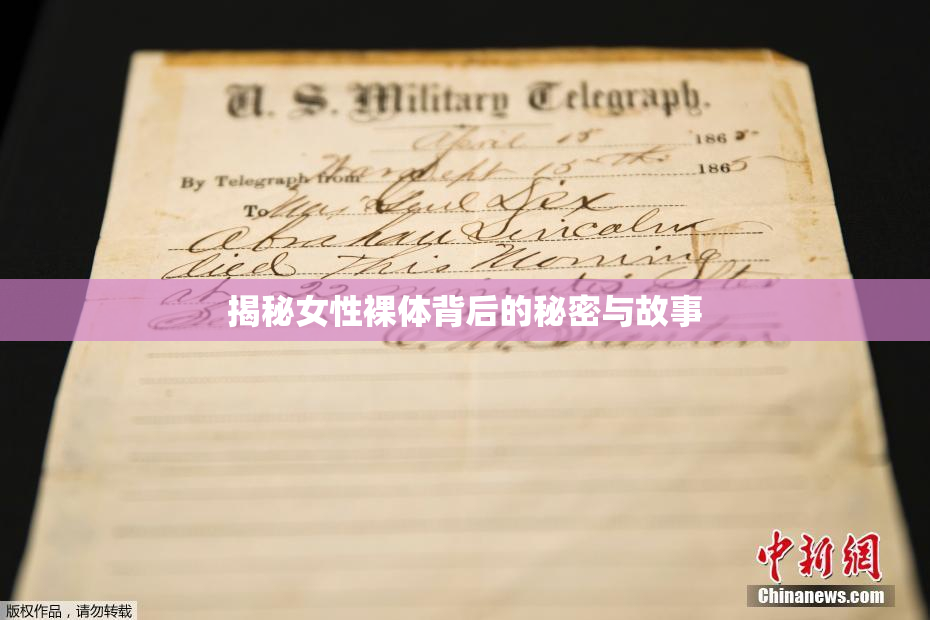 U. S. Military Telegraph.
April 15 1865
By Telegraph from War Dept 15th 1865
To Maj Genl Dix
Abraham Lincoln
died This Morning
at 22 minutes after
揭秘女性裸体背后的秘密与故事
Stanton
中新网
Chinanews.com
版权作品，请勿转载